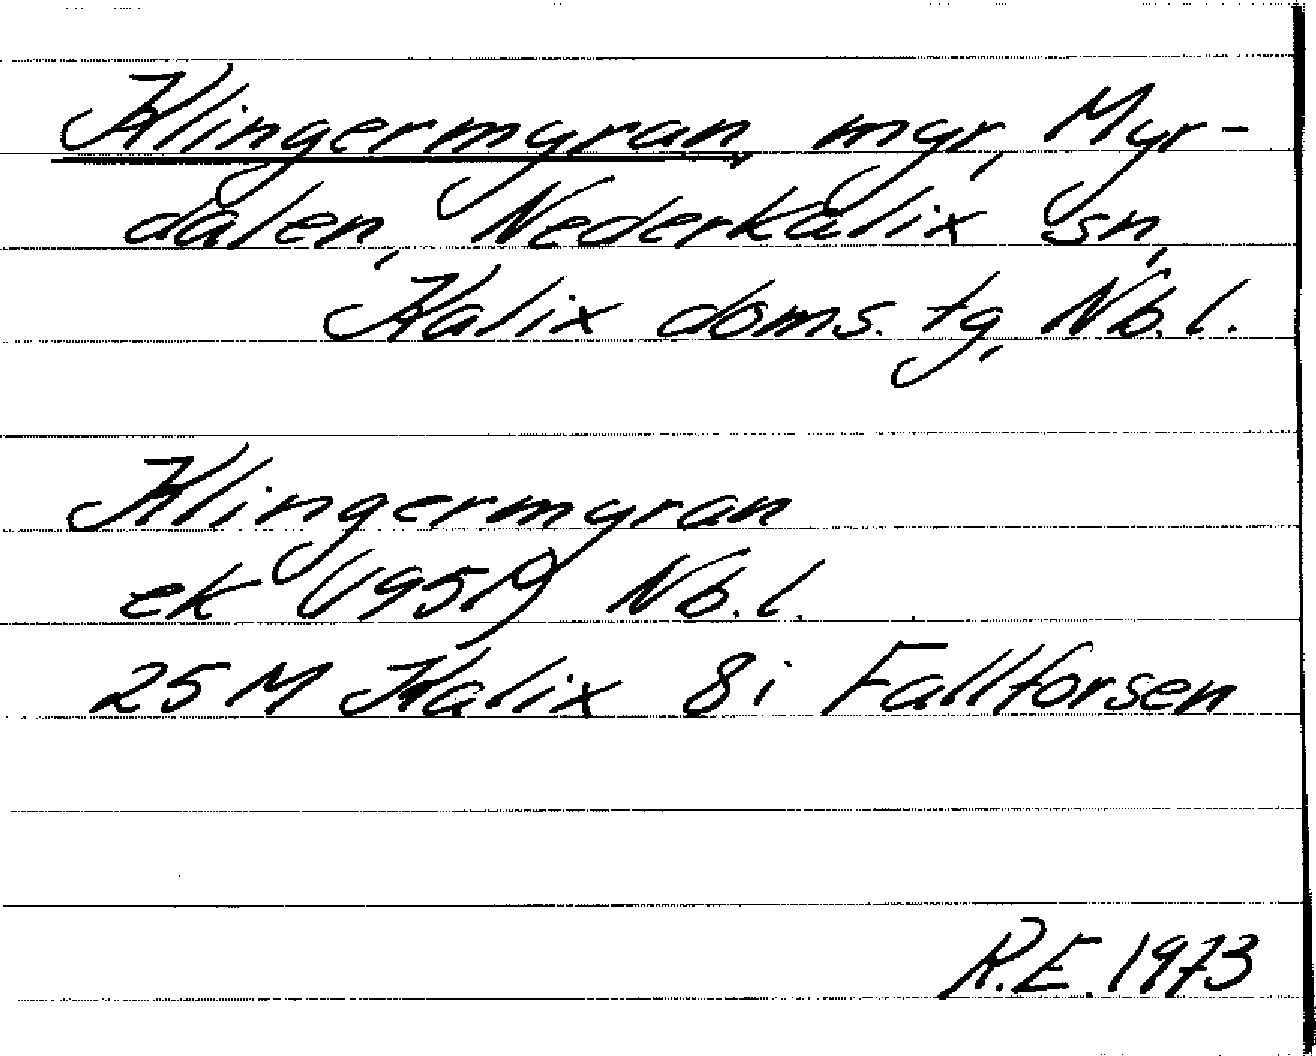 Klingermyran, myr, Myr-
dalen, Nederkalix sn,
Kalix doms. tg, Nb. l.
Klingermyran
ek (1951) Nb. l.
25 M Kalix 8i Fallforsen
R.E. 1973